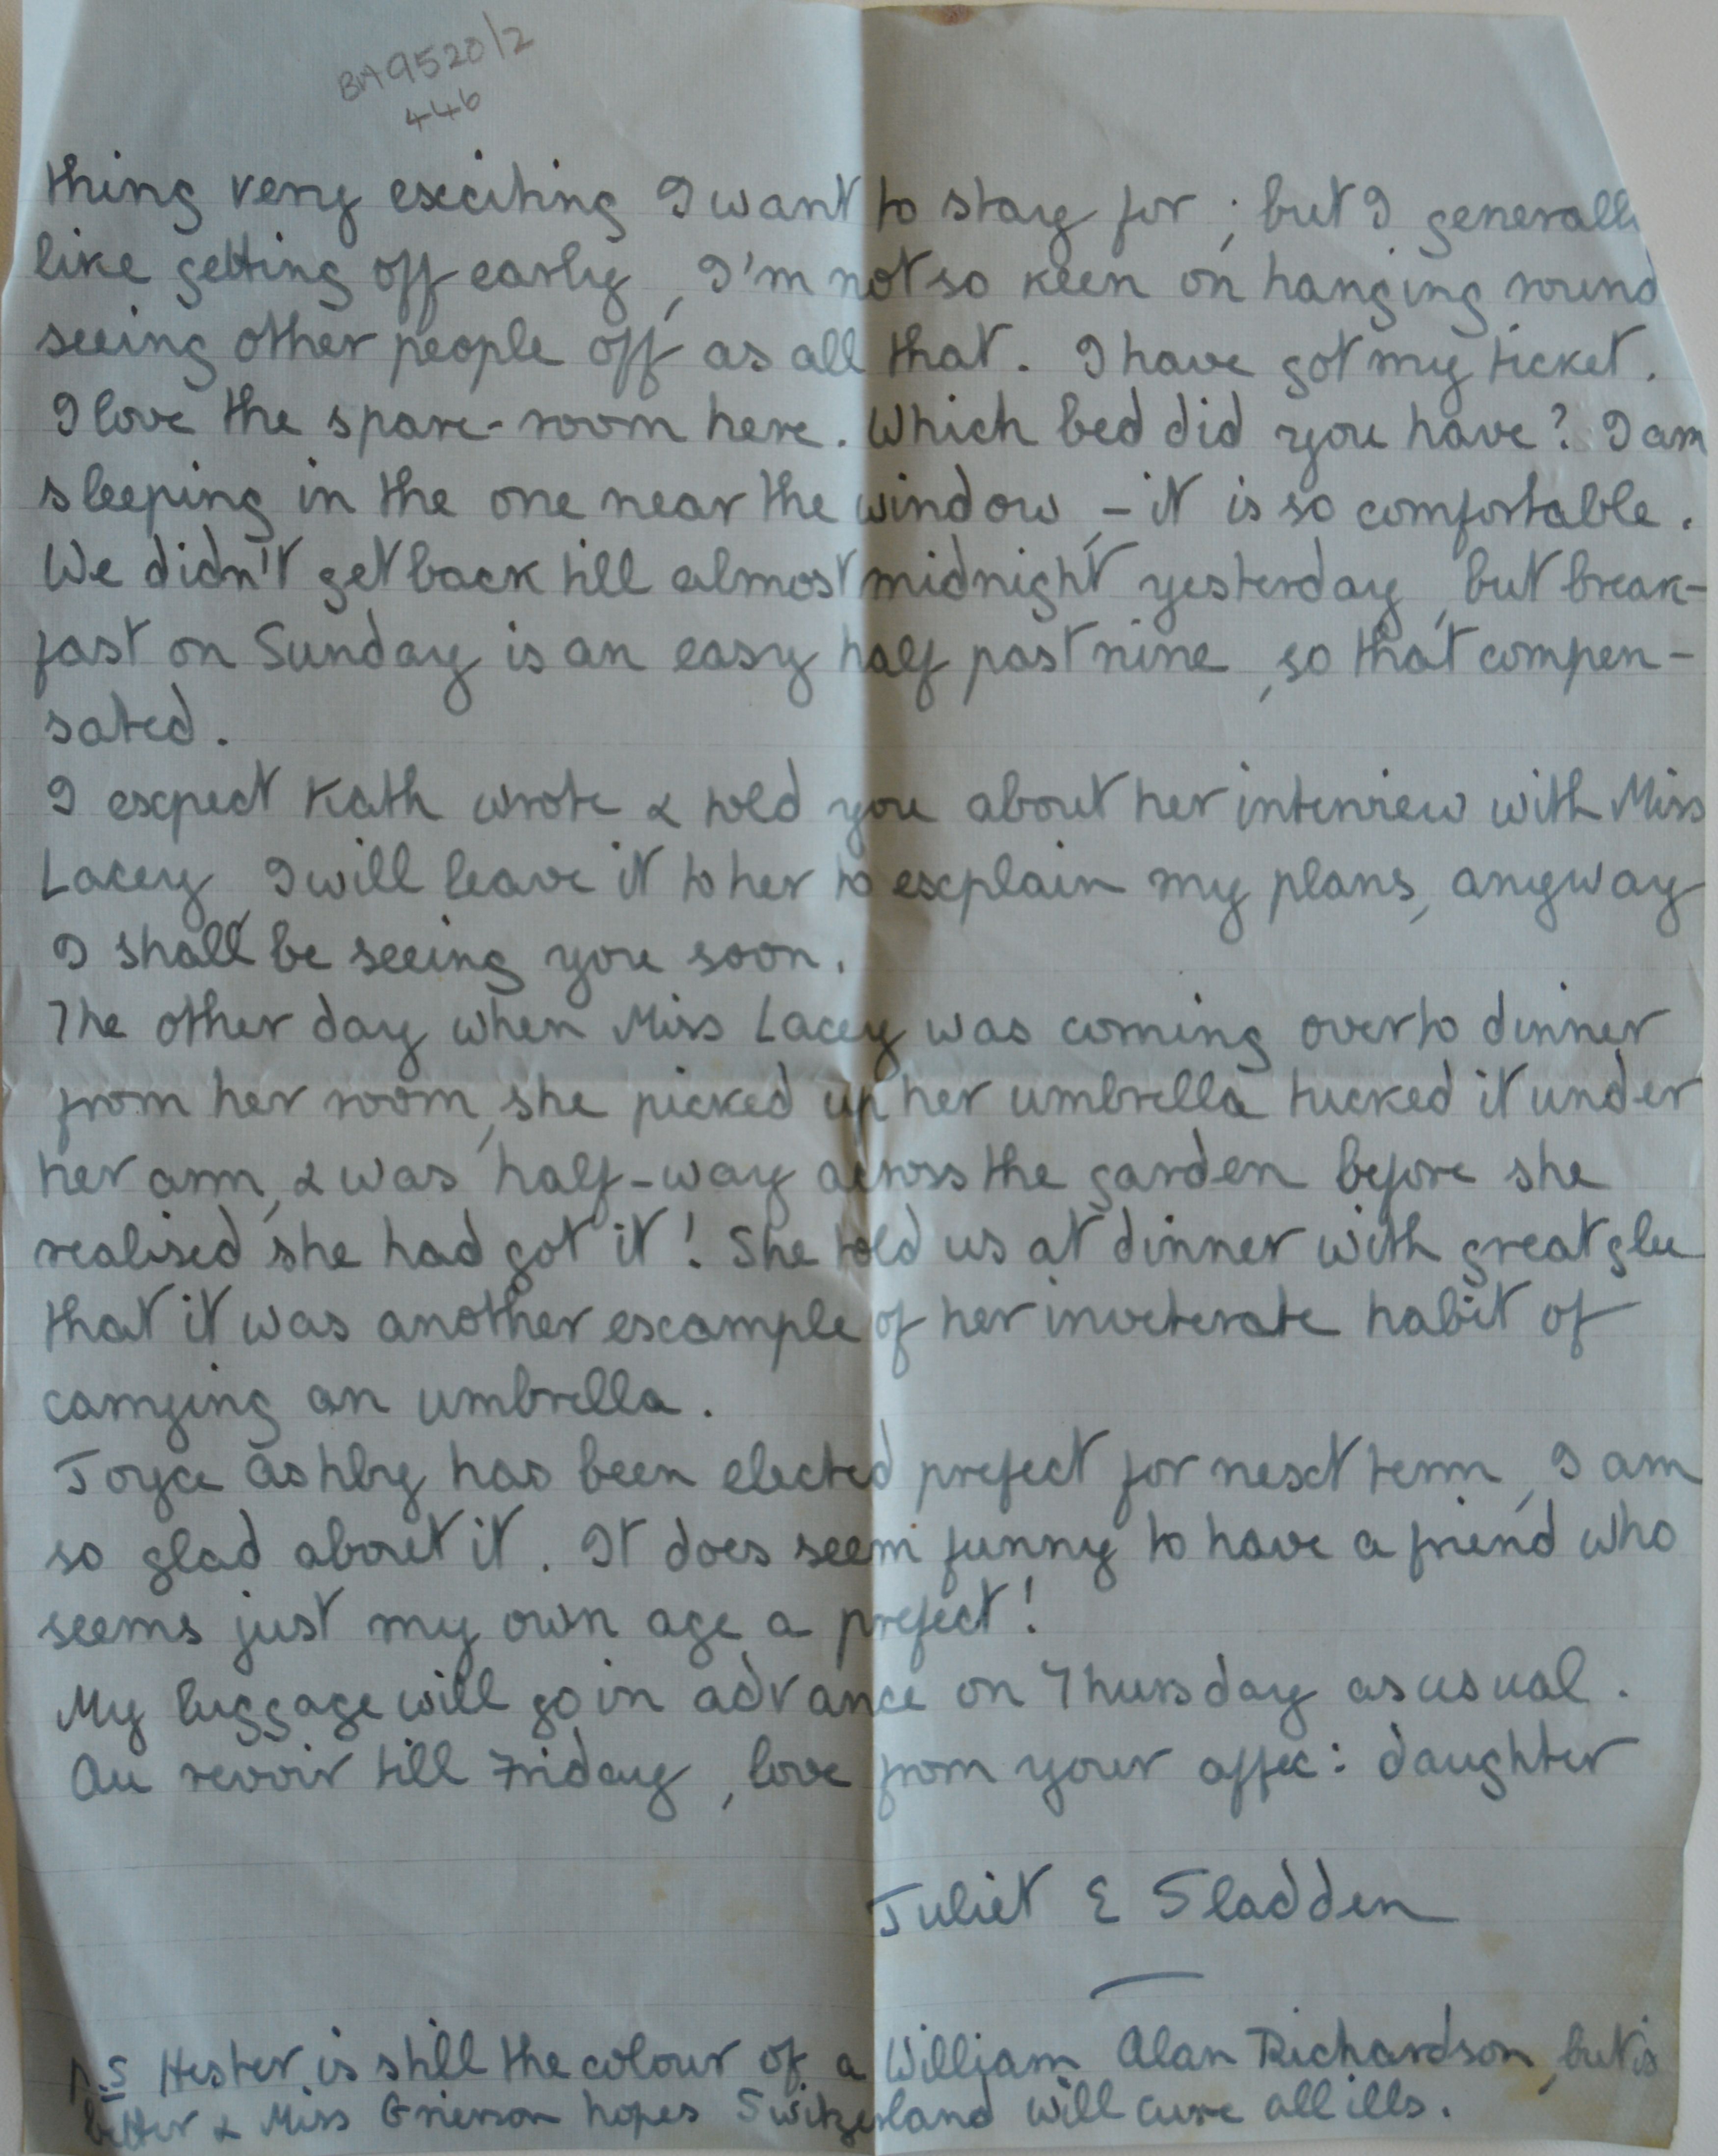 BA9520/2
446
thing very exciting I want to stay for; but I generally
like getting off early, I'm not so keen on hanging round
seeing other people off as all that. I have got my ticket.
I love the spare-room here. Which bed did you have? I am
sleeping in the one near the window, - it is so comfortable.
We didn't get back till almost midnight yesterday, but break-
fast on Sunday is an easy half past nine, so that compen-
sated.
I expect Kath wrote & told you about her interview with Miss
Lacey, I will leave it to her to explain my plans, anyway
I shall be seeing you soon.
The other day when Miss Lacey was coming over to dinner
from her room, she picked up her umbrella tucked it under
her arm, & was half-way across the garden before she
realised she had got it! She told us at dinner with great glee
that it was another example of her inveterate habit of
carrying an umbrella.
Joyce Ashby has been elected prefect for next term, I am
so glad about it. It does seem funny to have a friend who
seems just my own age a prefect!
My luggage will go in advance on Thursday as usual.
Au revoir till Friday, love from your affec: daughter
Juliet E Sladden
P.S Hester is still the colour of a William Alan Richardson, but is
better & Miss Grierson hopes Switzerland will cure all ills.